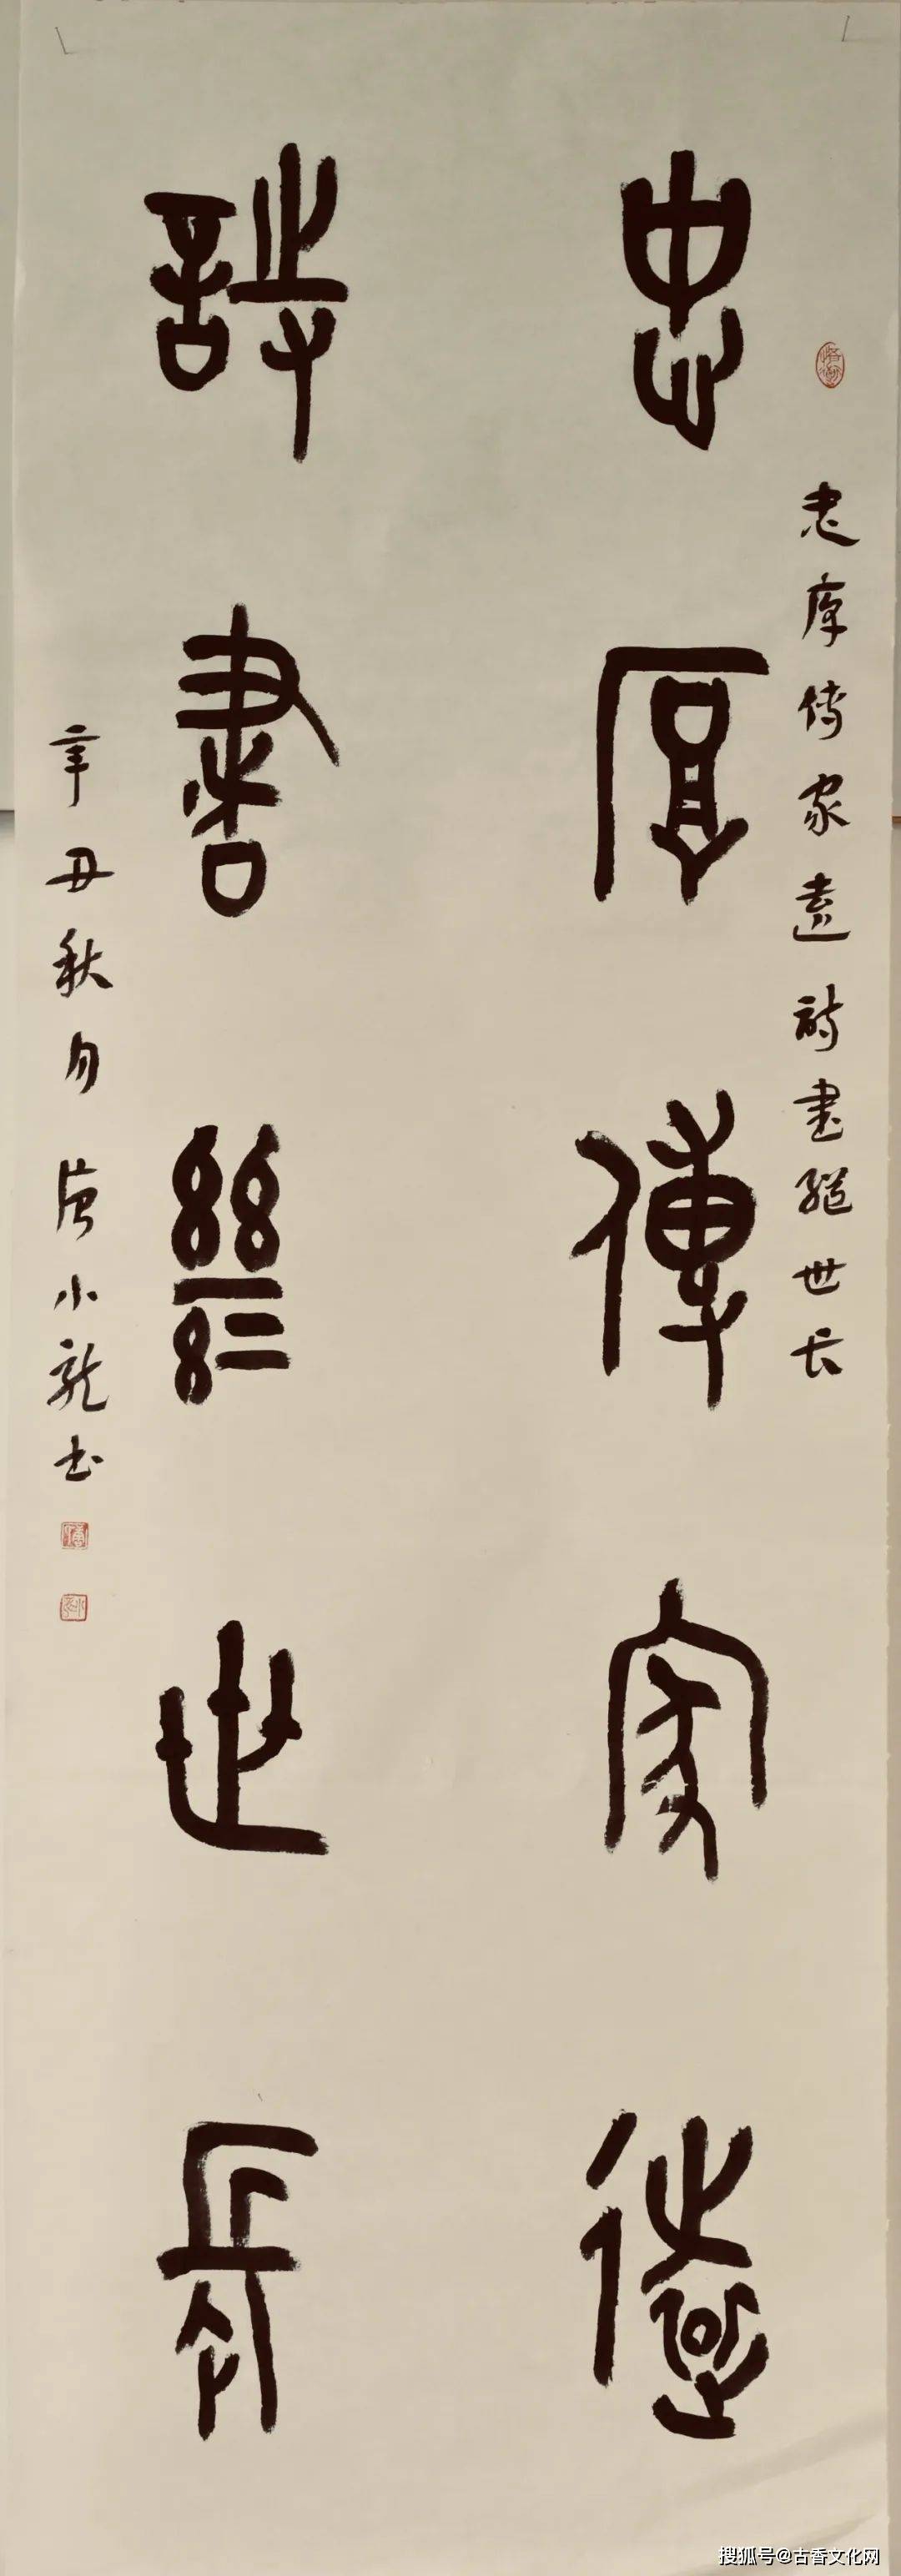 忠厚傳家遠
忠厚傳家遠詩書繼世长
詩書繼世長
辛丑秋月唐小龍书
搜狐号@古香文化网